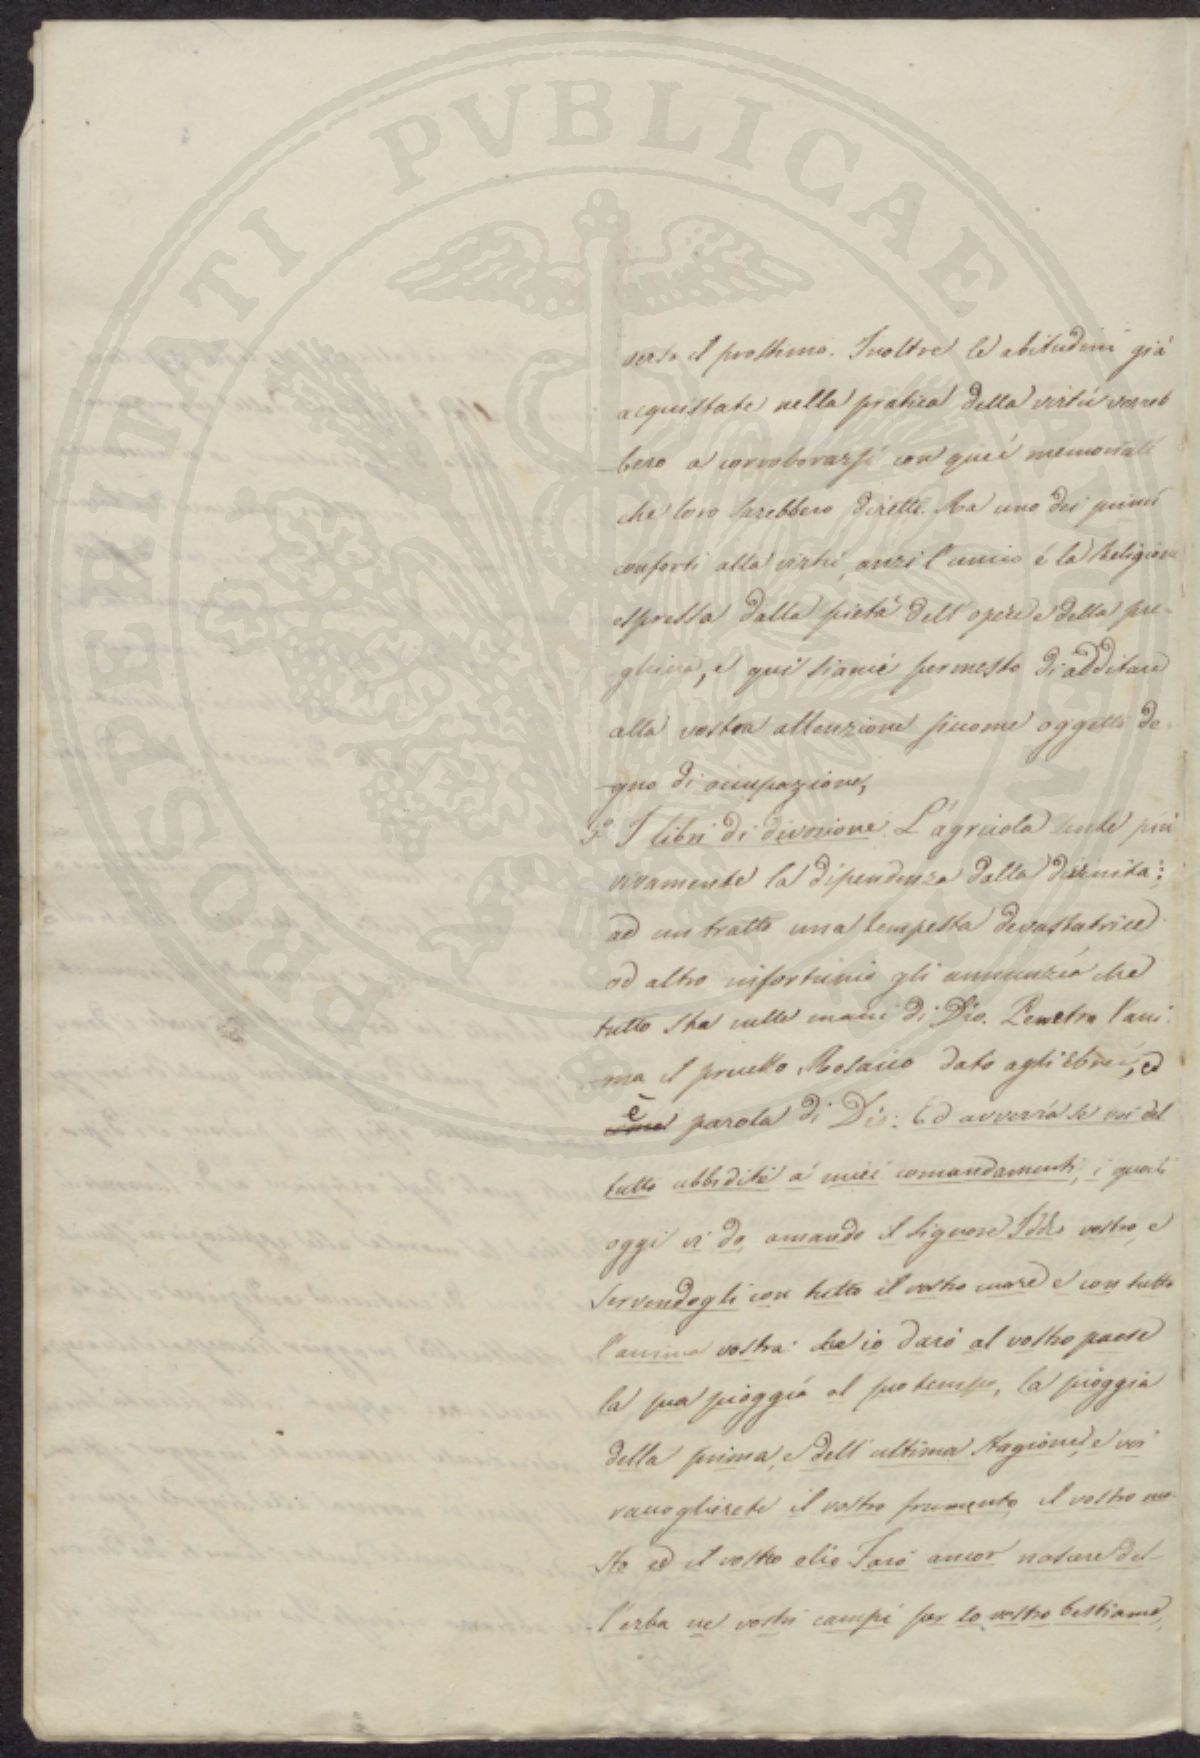 PROSPERITATI PVBLICAE
verso il prossimo. Inoltre le abitudini già
acquistate nella pratica della virtù verreb
bero a corroborarsi con quei memoriali
che loro sarebbero diretti. Ma uno dei primi
conforti alla virtù, anzi l'unico é la Religione
espressa dalla pietà dell'opere e della pre-
ghiera, e qui siami permesso di additare
alla vostra attenzione siccome oggetto de-
gno di occupazione,
I libri di divozione. L'agricola sente più
vivamente la dipendenza dalla divinita:
ad un tratto una tempesta devastatrice
od altro infortunio gli annunzia che
tutto sta nelle mani di Dio. Penetra l'ani
ma il precetto Mosaico dato agli Ebrei, ed
è parola di Dio: Ed avverrà se voi del
tutto ubbidite a' miei comandamenti, i quali
oggi vi do, amando il Signore Iddio vostro, e
servendogli con tutto il vostro cuore e con tutta
l'anima vostra: che io darò al vostro paese
la sua pioggia al suo tempo, la pioggia
della prima, e dell'ultima stagione, e voi
raccoglierete il vostro frumento, il vostro mo-
sto ed il vostro olio Farò ancor nascere del-
l'erba ne' vostri campi per lo vostro bestiame,